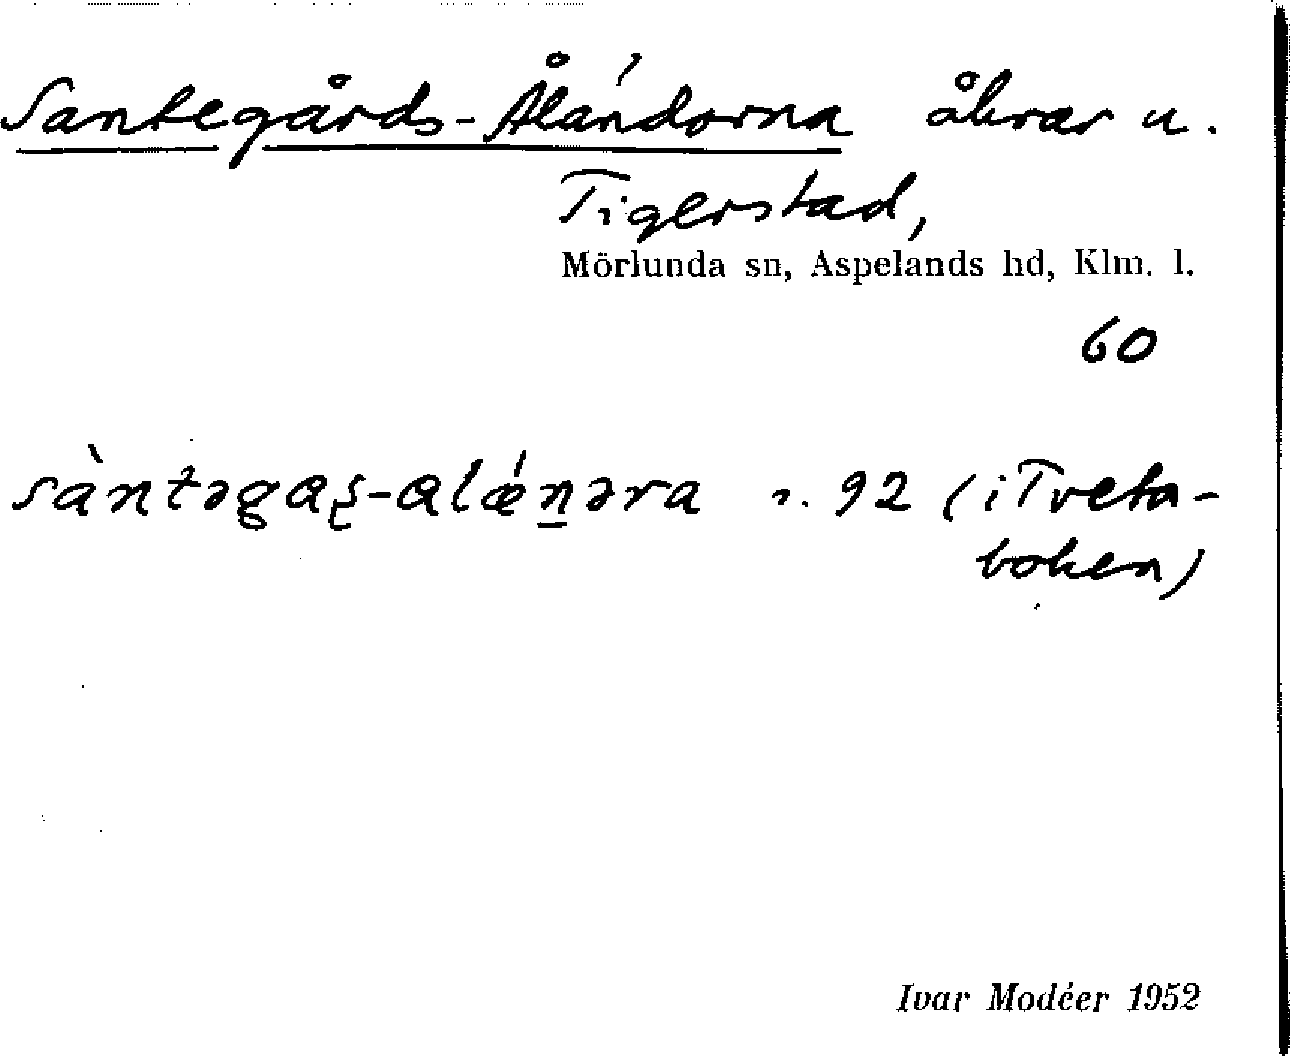 Santegårds-Åĺandorna åkrar u.
Tigerstad,
Mörlunda sn, Aspelands hd, Klm. l.
60
sàntəgaʂ-alǽn̲əra s. 92 (i Tveta-
boken)
Ivar Modéer 1952